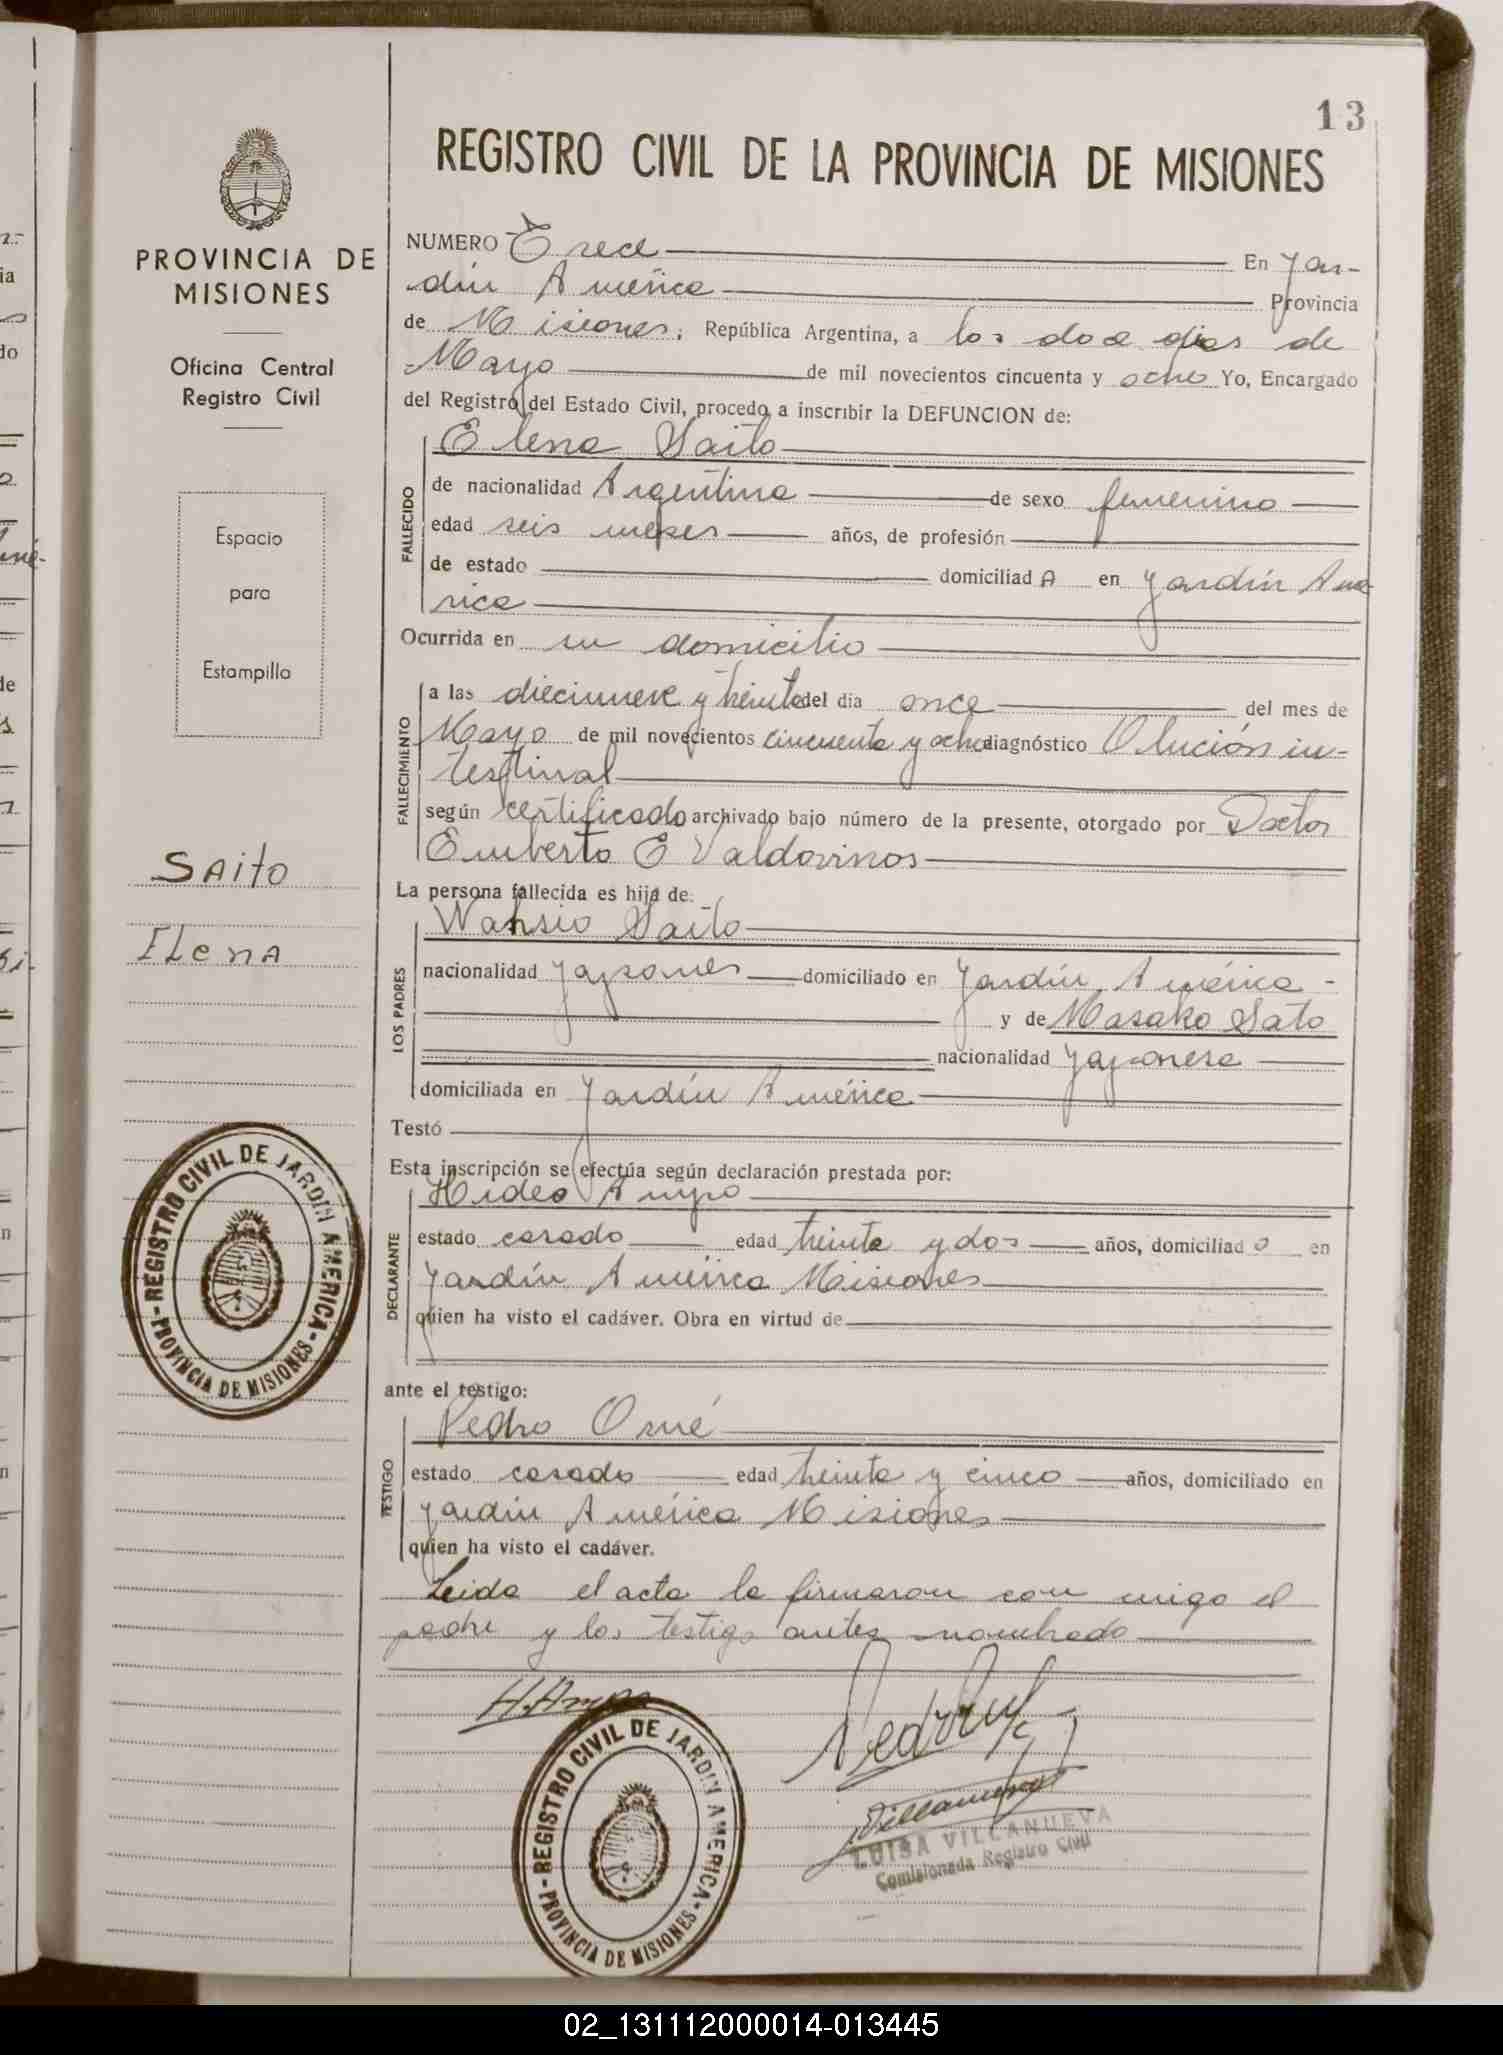 13
REGISTRO CIVIL DE LA PROVINCIA DE MISIONES
PROVINCIA DE
MISIONES
Oficina Central
Registro Civil
Espacio
para
Estampilla
SAito
ELenA
REGISTRO CIVIL DE JARDIN AMERICA - PROVINCIA DE MISIONES -
NUMERO Trece En Jar-
dín América Provincia
de Misiones, República Argentina, a los doce dias de
Mayo de mil novecientos cincuenta y ocho Yo, Encargado
del Registro del Estado Civil, procedo a inscribir la DEFUNCION de:
Elena Saito
FALLECIDO
de nacionalidad Argentina de sexo femenino
edad seis meses años, de profesión
de estado domiciliad A en Jardín Amé
rica
Ocurrida en su domicilio
FALLECIMIENTO
a las diecinueve y treinta del dia once del mes de
Mayo de mil novecientos cincuenta y ocho diagnóstico Olución in-
testinal
según certificado archivado bajo número de la presente, otorgado por Doctor
Emberto E Valdovinos
La persona fallecida es hija de:
LOS PADRES
Wahsio Saito
nacionalidad Japones domiciliado en Jardín América -
y de Masako Sato
nacionalidad Japonesa
domiciliada en Jardín América
Testó
Esta inscripción se efectúa según declaración prestada por:
DECLARANTE
Hideo Anpo
estado casado edad treinta y dos años, domiciliad o en
Jardín América Misiones
quien ha visto el cadáver. Obra en virtud de
ante el testigo:
TESTIGO
Pedro Orué
estado casado edad treinta y cinco años, domiciliado en
Jardín América Misiones
quien ha visto el cadáver.
Leida el acta la firmaron con migo el
padre y los testigo antes nombrado
REGISTRO CIVIL DE JARDIN AMERICA - PROVINCIA DE MISIONES -
Villanueva
LUISA VILLANUEVA
Comisionada Registro Civil
02_131112000014-013445